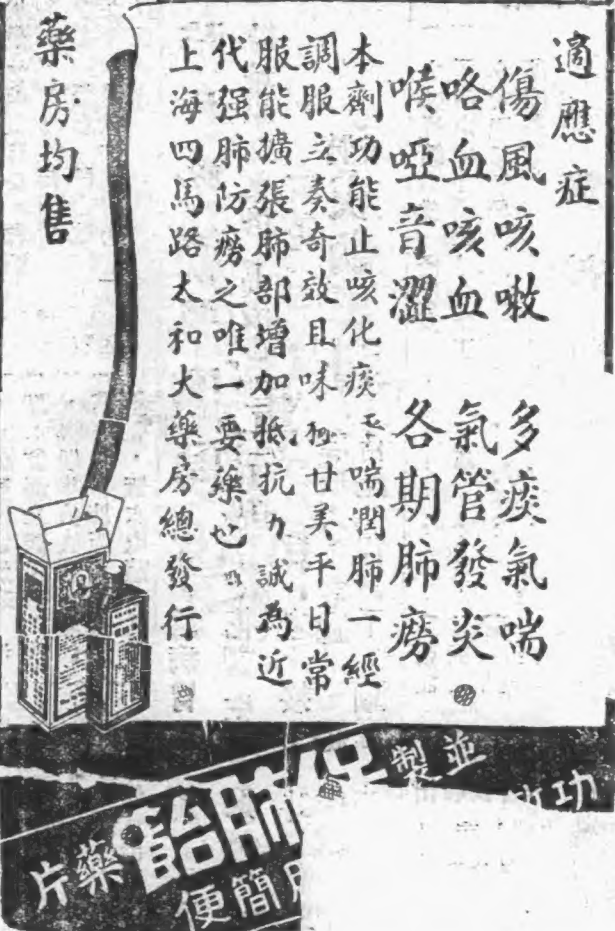 適應症
傷風咳嗽　多痰氣喘
咯血咳血　氣管發炎
喉啞音澀　各期肺癆
本劑功能止咳化痰平喘潤肺一經
調服立奏奇效且味甘美平日常
服能擴張肺部增加抵抗力誠為近
代强肺防癆之唯一要藥也
上海四馬路太和大藥房總發行
藥房均售
並製
保肺飴
藥片
功
簡便